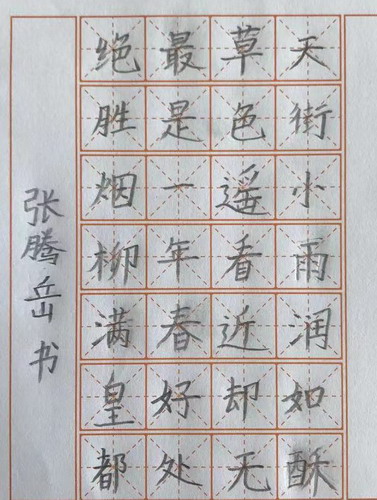 天街小雨润如酥
草色遥看近却无
最是一年春好处
绝胜烟柳满皇都
张腾岳书